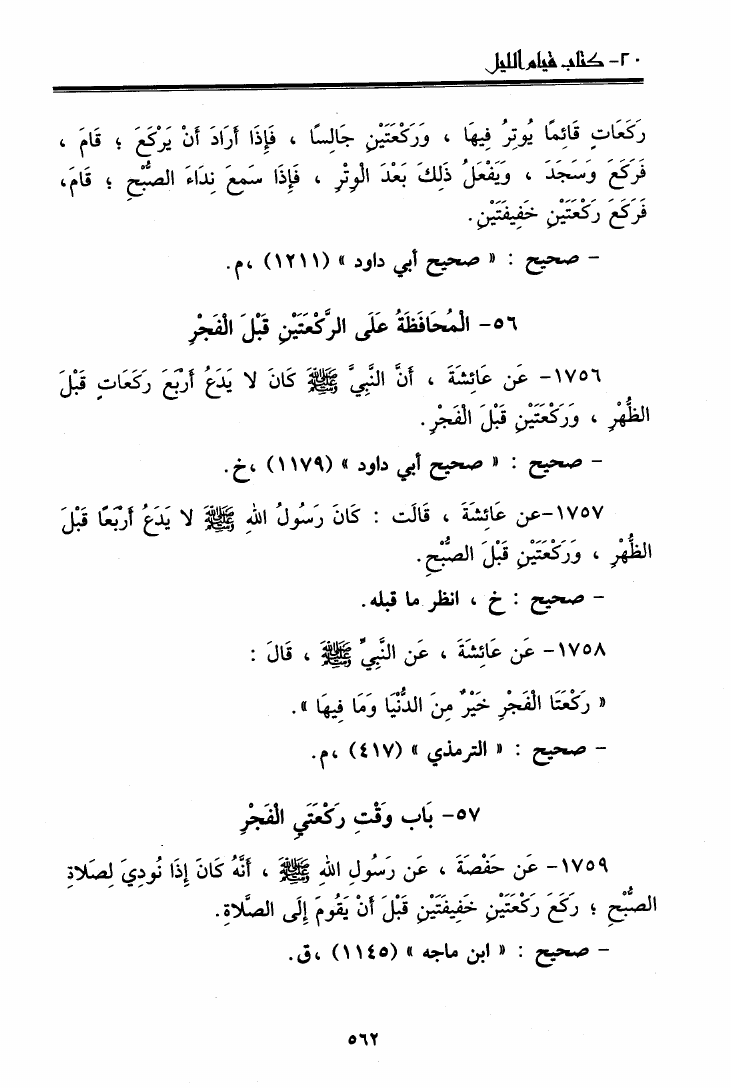 ٢٠- كتاب قيام الليل
رَكَعَاتٍ قَائِمًا يُوتِرُ فِيهَا ، وَرَكْعَتَيْنِ جَالِسًا ، فَإِذَا أَرَادَ أَنْ يَرْكَعَ ؛ قَامَ ،
فَرَكَعَ وَسَجَدَ ، وَيَفْعَلُ ذَلِكَ بَعْدَ الْوِتْرِ ، فَإِذَا سَمِعَ نِدَاءَ الصُّبْحِ ؛ قَامَ،
فَرَكَعَ رَكْعَتَيْنِ خَفِيفَتَيْنِ.
- صحيح : « صحيح أبي داود » (١٢١١) ،م.
٥٦- الْمُحَافَظَةُ عَلَى الرَّكْعَتَيْنِ قَبْلَ الْفَجْرِ
١٧٥٦- عَن عَائِشَةَ ، أَنَّ النَّبِيَّ ﷺ كَانَ لا يَدَعُ أَرْبَعَ رَكَعَاتٍ قَبْلَ
الظُّهْرِ ، وَرَكْعَتَيْنِ قَبْلَ الْفَجْرِ.
- صحيح : « صحيح أبي داود » (١١٧٩) ،خ.
١٧٥٧-عن عَائِشَةَ ، قَالَت : كَانَ رَسُولُ اللهِ ﷺ لا يَدَعُ أَرْبَعًا قَبْلَ
الظُّهْرِ ، وَرَكْعَتَيْنِ قَبْلَ الصُّبْحِ.
- صحيح : خ ، انظر ما قبله.
١٧٥٨- عَن عَائِشَةَ ، عَن النَّبِيِّ ﷺ ، قَالَ :
« رَكْعَتَا الْفَجْرِ خَيْرٌ مِنَ الدُّنْيَا وَمَا فِيهَا ».
- صحيح : « الترمذي » (٤١٧) ،م.
٥٧- بَاب وَقْتِ رَكْعَتَيِ الْفَجْرِ
١٧٥٩- عَن حَفْصَةَ ، عَن رَسُولِ اللهِ ﷺ ، أَنَّهُ كَانَ إِذَا نُودِيَ لِصَلاةِ
الصُّبْحِ ؛ رَكَعَ رَكْعَتَيْنِ خَفِيفَتَيْنِ قَبْلَ أَنْ يَقُومَ إِلَى الصَّلاةِ.
- صحيح : « ابن ماجه » (١١٤٥) ،ق.
٥٦٢